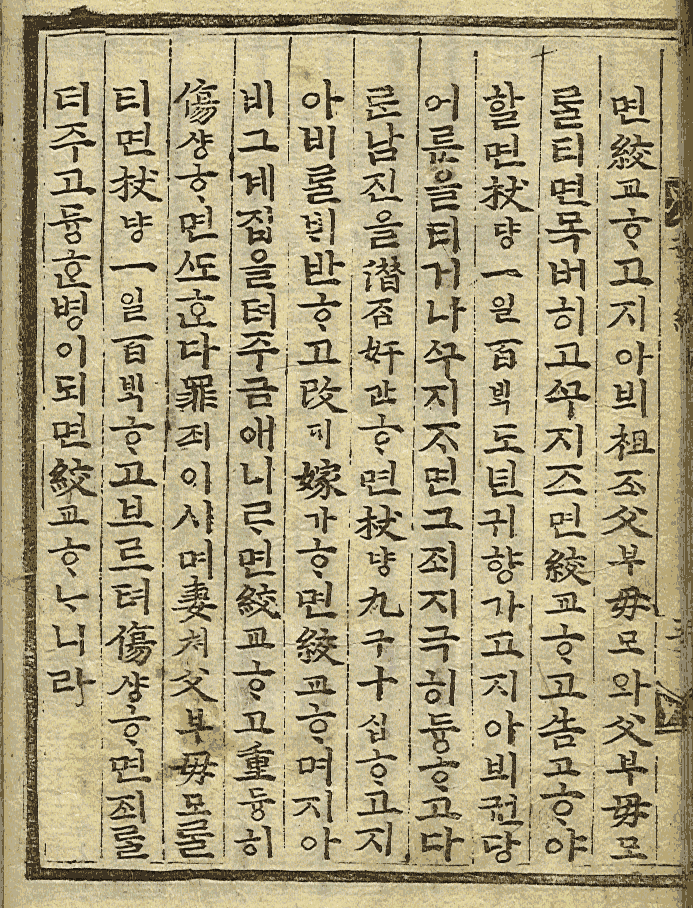 면絞교ᄒᆞ고지아븨祖조父부毋모와父부毋모
ᄅᆞᆯ티면목버히고ᄭᅮ지즈면絞교ᄒᆞ고告고ᄒᆞ야
할면杖댱一일百ᄇᆡᆨ도년귀향가고지아븨권당
어룬을티거나ᄭᅮ지즈면그죄지극히듕ᄒᆞ고다
ᄅᆞᆫ남진을潛ᄌᆞᆷ奸간ᄒᆞ면杖댱九구十십ᄒᆞ고지
아비ᄅᆞᆯᄇᆡ반ᄒᆞ고改ᄀᆡ嫁가ᄒᆞ면絞교ᄒᆞ며지아
비그계집을텨주금애니ᄅᆞ면絞교ᄒᆞ고重듕히
傷샹ᄒᆞ면ᄯᅩᄒᆞᆫ다罪죄이시며妻쳐父부毋모ᄅᆞᆯ
티면杖댱一일百ᄇᆡᆨᄒᆞ고브르텨傷샹ᄒᆞ면죄ᄅᆞᆯ
더주고듕ᄒᆞᆫ병이되면絞교ᄒᆞᄂᆞ니라